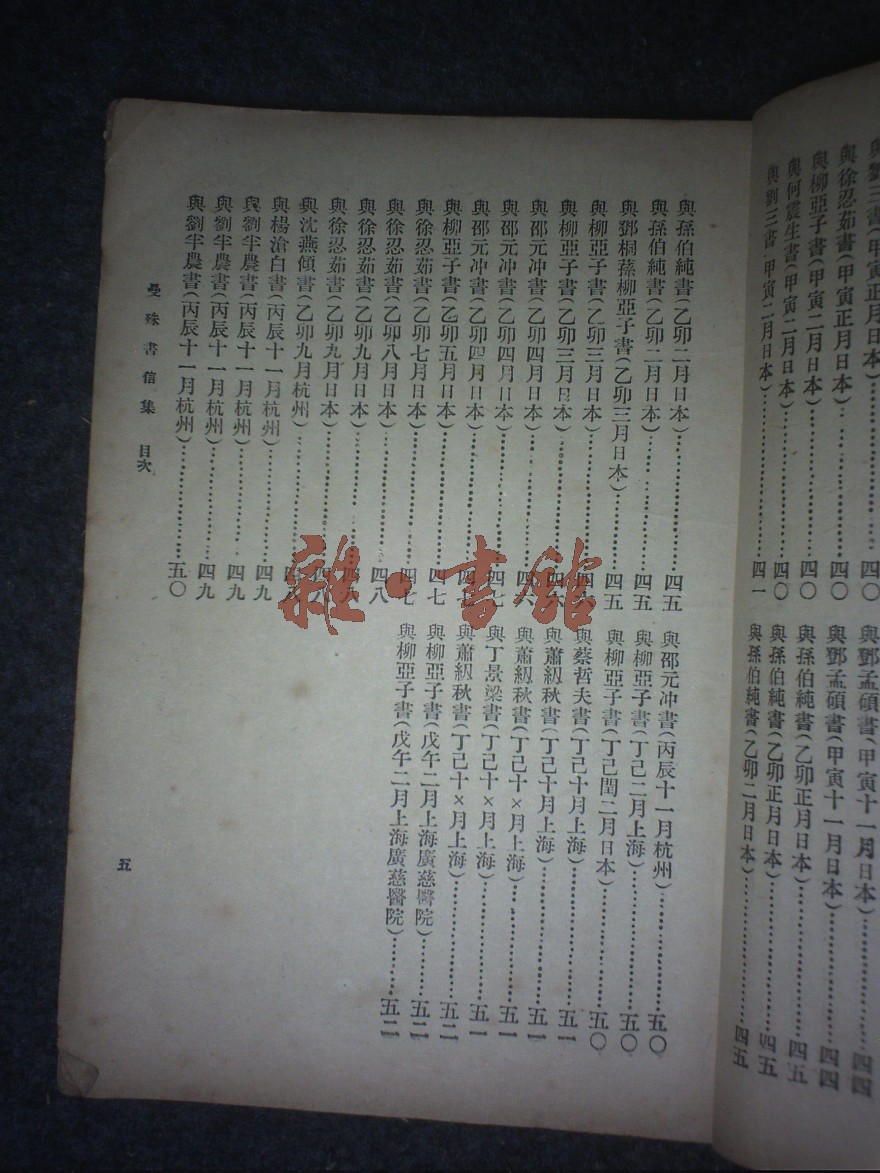 與劉三書
與徐忍茹書(甲寅正月日本)……四〇
與柳亞子書(甲寅二月日本)……四〇
與何震生書(甲寅二月日本)……四〇
與劉三書(甲寅二月日本)……四一
與鄧孟碩書(甲寅十一月日本)……四四
與鄧孟碩書(甲寅十一月日本)……四四
與孫伯純書(乙卯正月日本)……四五
與孫伯純書(乙卯正月日本)……四五
與孫伯純書(乙卯二月日本)……四五
與孫伯純書(乙卯二月日本)……四五
與孫伯純書(乙卯二月日本)……四五
與鄧桐蓀柳亞子書(乙卯三月日本)……四五
與柳亞子書(乙卯三月日本)……四六
與柳亞子書(乙卯三月日本)……四六
與邵元冲書(乙卯四月日本)……四六
與邵元冲書(乙卯四月日本)……四七
與邵元冲書(乙卯四月日本)……四七
與柳亞子書(乙卯五月日本)……四七
與徐忍茹書(乙卯七月日本)……四七
與徐忍茹書(乙卯八月日本)……四八
與徐忍茹書(乙卯九月日本)……
與徐忍茹書(乙卯九月日本)……四八
與沈燕傾書(乙卯九月杭州)……四八
與楊滄白書(丙辰十一月杭州)……四九
與劉半農書(丙辰十一月杭州)……四九
與劉半農書(丙辰十一月杭州)……四九
與劉半農書(丙辰十一月杭州)……五〇
與邵元冲書(丙辰十一月杭州)……五〇
與柳亞子書(丁己二月上海)……五〇
與柳亞子書(丁己閏二月日本)……五〇
與蔡哲夫書(丁己十月上海)……五一
與蕭紉秋書(丁己十月上海)……五一
與蕭紉秋書(丁己十×月上海)……五一
與丁景梁書(丁己十×月上海)……五一
與蕭紉秋書(丁己十×月上海)……五二
與柳亞子書(戊午二月上海廣慈醫院)……五二
與柳亞子書(戊午二月上海廣慈醫院)……五二
曼殊書信集 目次
五
雜·書館